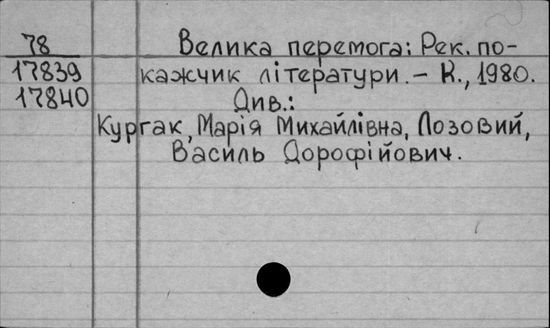 78 Велика перемога: Рек. по-
17839 кажчик літератури. – К., 1980.
17840 Див.:
Кургак, Марія Михайлівна, Лозовий,
Василь Дорофійович.